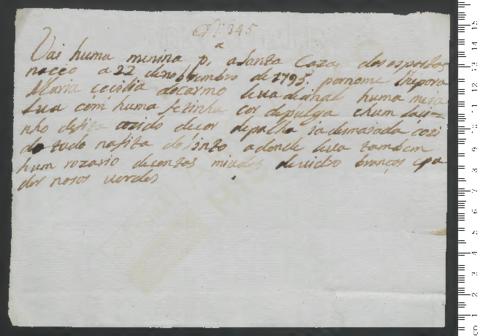 Nº 345
Vai huma menina p.ª a Santa Caza, dos espostos
naceo a 22 de Novembro de 1795, por nome
Maria cecilia do carmo leva de sinal huma meia
Lua com huma fezinha cor de pulga e hum laci-
nho de fita de cor de palha ja desmaiada cozi
do tudo na fita do sinto, a donde leva tambem
hum rozario de contas miudas de vidro branco e pa
dre nosos verdes